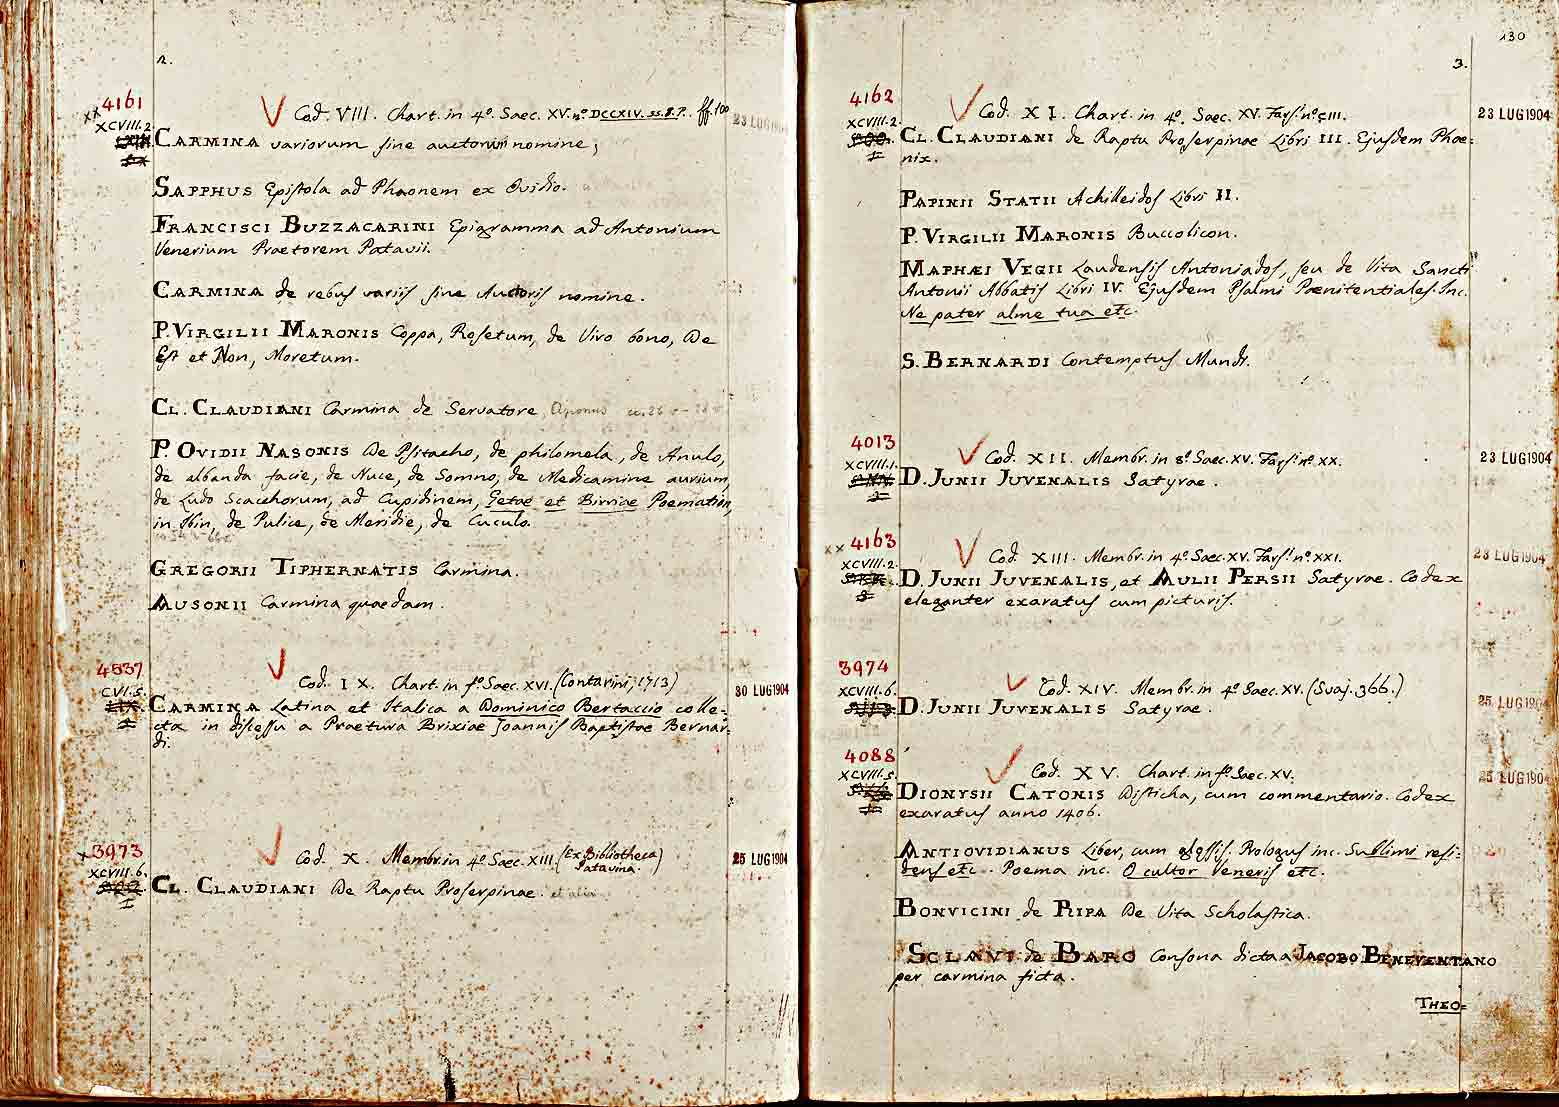 2.
4161
XCVIII.2
Cod. VIII. Chart. in 4º. Saec. XV. nº DCCXIV. ss. P. P. ff. 100
23 LUG 1904
CARMINA variorum sine auctorum nomine;
SAPPHUS Epistola ad Phaonem ex Ovidio.
FRANCISCI BUZZACARINI Epigramma ad Antonium
Venerium Praetorem Patavii.
CARMINA de rebus variis sine Auctoris nomine.
P. VIRGILII MARONIS Coppa, Rosetum, de Viro bono, De
Est et Non, Moretum.
CL. CLAUDIANI Carmina de Servatore, Aponus
P. OVIDII NASONIS De Psitacho, de philomela, de Anulo,
de albanda facie, de Nuce, de Somno, de Medicamine aurium,
de Ludo Scacchorum, ad Cupidinem, Getae et Birriae Poemation,
in Ibin, de Pulice, de Meridie, de Cuculo.
GREGORII TIPHERNATIS Carmina.
AUSONII Carmina quaedam.
4537
CVI.5.
Cod. IX. Chart. in fº. Saec. XVI. (Contarini, 1713)
30 LUG 1904
CARMINA Latina et Italica a Dominico Bertaccio colle-
cta in discessu a Praetura Brixiae Joannis Baptistae Bernar-
di.
x3973
XCVIII.6.
Cod. X. Membr. in 4º. Saec. XIII. (Ex Bibliotheca Patavina.)
25 LUG 1904
CL. CLAUDIANI De Raptu Proserpinae. et alia
130
3.
4162
XCVIII.2.
Cod. XI. Chart. in 4º. Saec. XV. Fars. nº CIII.
23 LUG 1904
CL. CLAUDIANI de Raptu Proserpinae Libri III. Ejusdem Phoe-
nix.
PAPINII STATII Achilleidos Libri II.
P. VIRGILII MARONIS Buccolicon.
MAPHÆI VEGII Laudensis Antoniados, seu de Vita Sancti
Antonii Abbatis Libri IV. Ejusdem Psalmi Pœnitentiales. Inc.
Ne pater alme tua etc.
S. BERNARDI Contemptus Mundi.
4013
XCVIII.1.
Cod. XII. Membr. in 8º. Saec. XV. Fars. nº XX.
23 LUG 1904
D. JUNII JUVENALIS Satyrae.
xx 4163
XCVIII.2.
Cod. XIII. Membr. in 4º. Saec. XV. Fars. nº XXI.
23 LUG 1904
D. JUNII JUVENALIS, et AULII PERSII Satyrae. Codex
eleganter exaratus cum picturis.
3974
XCVIII.6.
Cod. XIV. Membr. in 4º. Saec. XV. (Suaj. 366.)
25 LUG 1904
D. JUNII JUVENALIS Satyrae.
4088
XCVIII.5.
Cod. XV. Chart. in fº. Saec. XV.
25 LUG 1904
DIONYSII CATONIS Disticha, cum commentario. Codex
exaratus anno 1406.
ANTIOVIDIANUS Liber, cum glossis. Prologus inc. Sublimi resi-
dens etc. Poema inc. O cultor Veneris etc.
BONVICINI de RIPA De Vita Scholastica.
SCLAVI de BARO Consona dicta a JACOBO BENEVENTANO
per carmina ficta.
THEO=